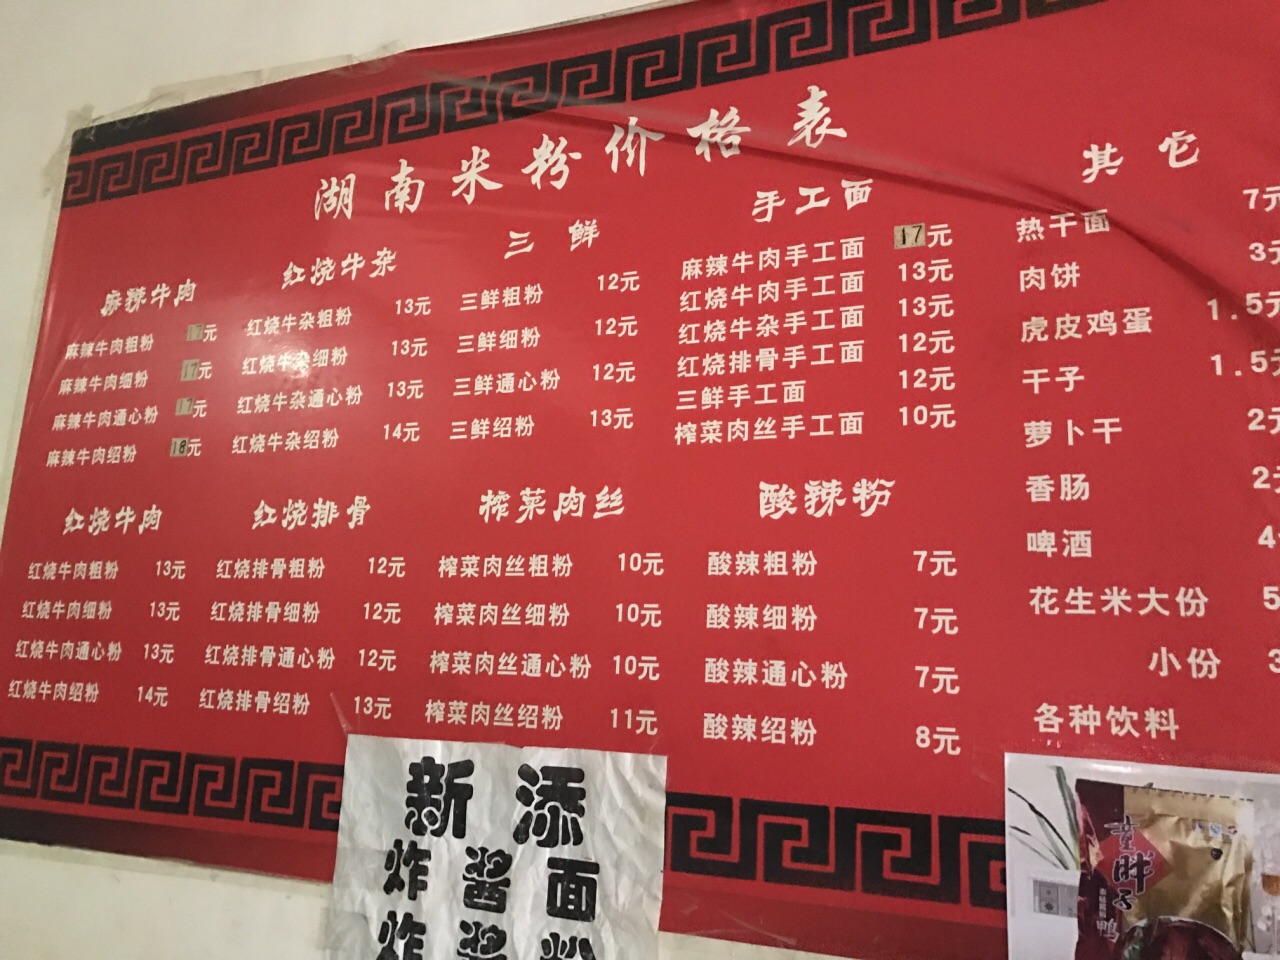 湖南米粉价格表
麻辣牛肉
麻辣牛肉粗粉 17元
麻辣牛肉细粉 17元
麻辣牛肉通心粉 17元
麻辣牛肉绍粉 18元
红烧牛杂
红烧牛杂粗粉 13元
红烧牛杂细粉 13元
红烧牛杂通心粉 13元
红烧牛杂绍粉 14元
三鲜
三鲜粗粉 12元
三鲜细粉 12元
三鲜通心粉 12元
三鲜绍粉 13元
手工面
麻辣牛肉手工面 17元
红烧牛肉手工面 13元
红烧牛杂手工面 13元
红烧排骨手工面 12元
三鲜手工面 12元
榨菜肉丝手工面 10元
红烧牛肉
红烧牛肉粗粉 13元
红烧牛肉细粉 13元
红烧牛肉通心粉 13元
红烧牛肉绍粉 14元
红烧排骨
红烧排骨粗粉 12元
红烧排骨细粉 12元
红烧排骨通心粉 12元
红烧排骨绍粉 13元
榨菜肉丝
榨菜肉丝粗粉 10元
榨菜肉丝细粉 10元
榨菜肉丝通心粉 10元
榨菜肉丝绍粉 11元
酸辣粉
酸辣粗粉 7元
酸辣细粉 7元
酸辣通心粉 7元
酸辣绍粉 8元
其它
热干面 7元
肉饼 3元
虎皮鸡蛋 1.5元
干子 1.5元
萝卜干 2元
香肠 2元
啤酒 4
花生米大份 5
小份 3
各种饮料
新添
炸酱面
炸酱粉
童胖子
鸭